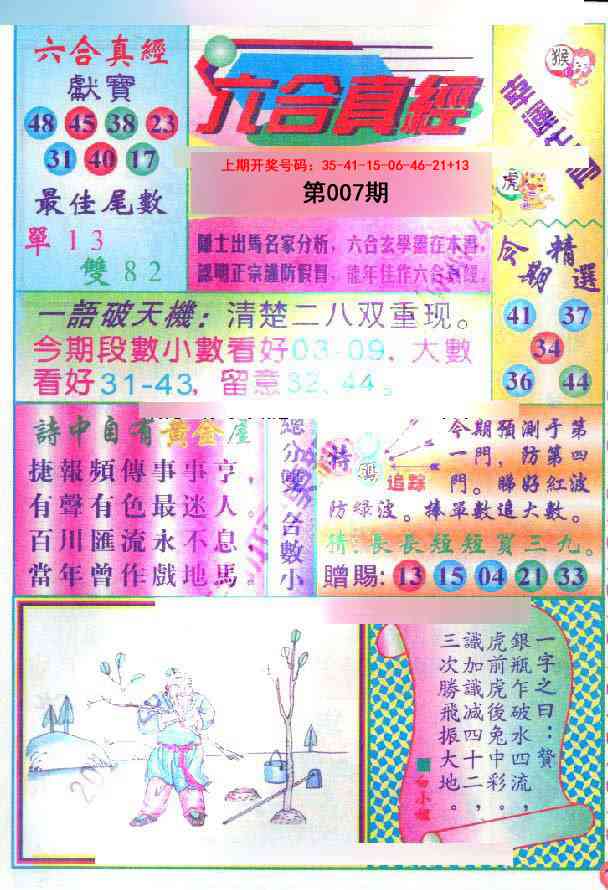 六合真經
獻寶
48 45 38 23
31 40 17
最佳尾數
單 1 3
雙 8 2
六合真經
上期开奖号码：35-41-15-06-46-21+13
第007期
六合玄學盡在本書，
龍年佳作六合真經。
猴
虎
今期
精選
41 37
34
36 44
一語破天機：清楚二八双重现。
今期段數小數看好03-09，大數
看好31-43，留意32、44。
詩中自有黄金屋
捷報頻傳事事亨，
有聲有色最迷人。
百川匯流永不息，
當年曾作戲地馬。
總分雙 合數小
特碼追踪
今期預測于第
一門，防第四
門。睇好紅波
防绿波。捧單數追大數。
猜：長長短短買三九。
贈賜：13 15 04 21 33
一字之曰：贊
銀瓶乍破水四流，
虎前虎後兔中彩，
識加識减四十二，
三次勝飛振大地。
白小姐